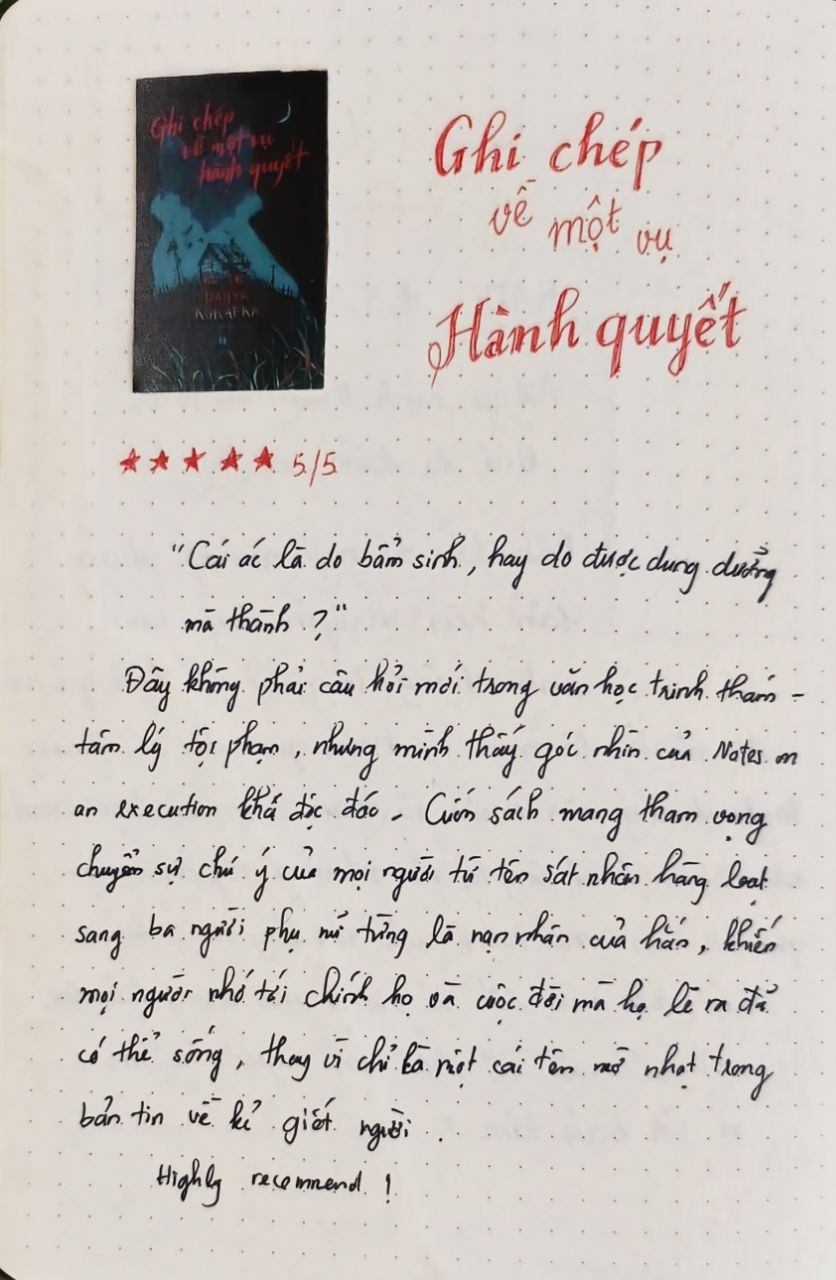 Ghi chép
về một vụ
hành quyết
DANYA
KUKAFKA
Ghi chép
về một vụ
Hành quyết
★★★★★ 5/5
"Cái ác là do bẩm sinh, hay do được dung dưỡng
mà thành?"
Đây không phải câu hỏi mới trong văn học trinh thám -
tâm lý tội phạm, nhưng mình thấy góc nhìn của Notes on
an execution khá độc đáo. Cuốn sách mang tham vọng
chuyển sự chú ý của mọi người từ tên sát nhân hàng loạt
sang ba người phụ nữ từng là nạn nhân của hắn, khiến
mọi người nhớ tới chính họ và cuộc đời mà họ lẽ ra đã
có thể sống, thay vì chỉ là một cái tên mờ nhạt trong
bản tin về kẻ giết người.
Highly recommend!